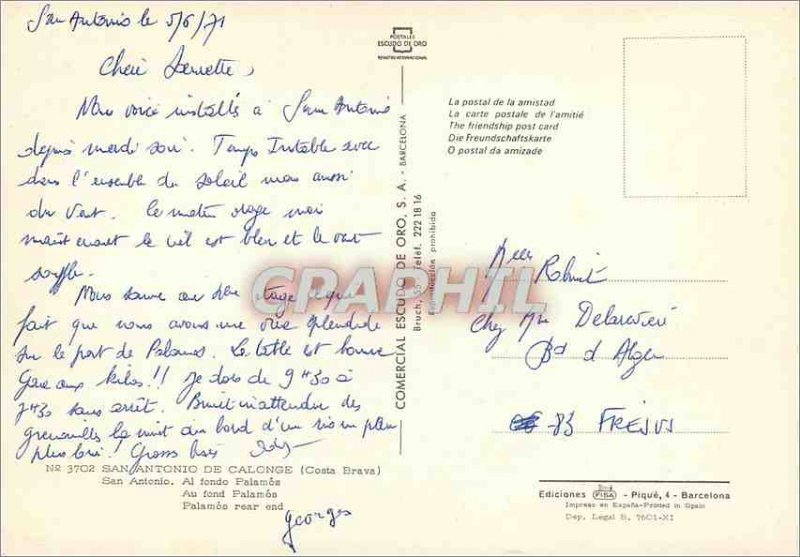 San Antonio le 5/6/71
Cheri
Nous voici installés à San Antonio
depuis mardi soir. Temps Instable avec
dans l'ensemble du soleil mais aussi
du vent. Ce matin orage mais
maintenant le ciel est bleu et le vent
souffle.
Nous sommes au étage ce qui
fait que nous avons une vue splendide
sur le port de Palamos. La table est bonne
Gare aux kilos!! Je dors de 9h30 à
7h30 sans arrêt. Bruit inattendu des
grenouilles la nuit au bord d'un
Gros bises
georges
POSTALES
ESCUDO DE ORO
REGISTRO INTERNACIONAL
COMERCIAL ESCUDO DE ORO, S. A. - BARCELONA
Bruch, Teléf. 222 18 16
prohibida
La postal de la amistad
La carte postale de l'amitié
The friendship post card
Die Freundschaftskarte
O postal da amizade
Melle Robinet
Chez Mme
Bd d'Alger
83 FREJUS
CPARPHIL
Nº 3702 SAN ANTONIO DE CALONGE (Costa Brava)
San Antonio. Al fondo Palamós
Au fond Palamós
Palamós rear end
Ediciones FISA - Piqué, 4 - Barcelona
Impreso en España-Printed in Spain
Dep. Legal B. 7601-XI